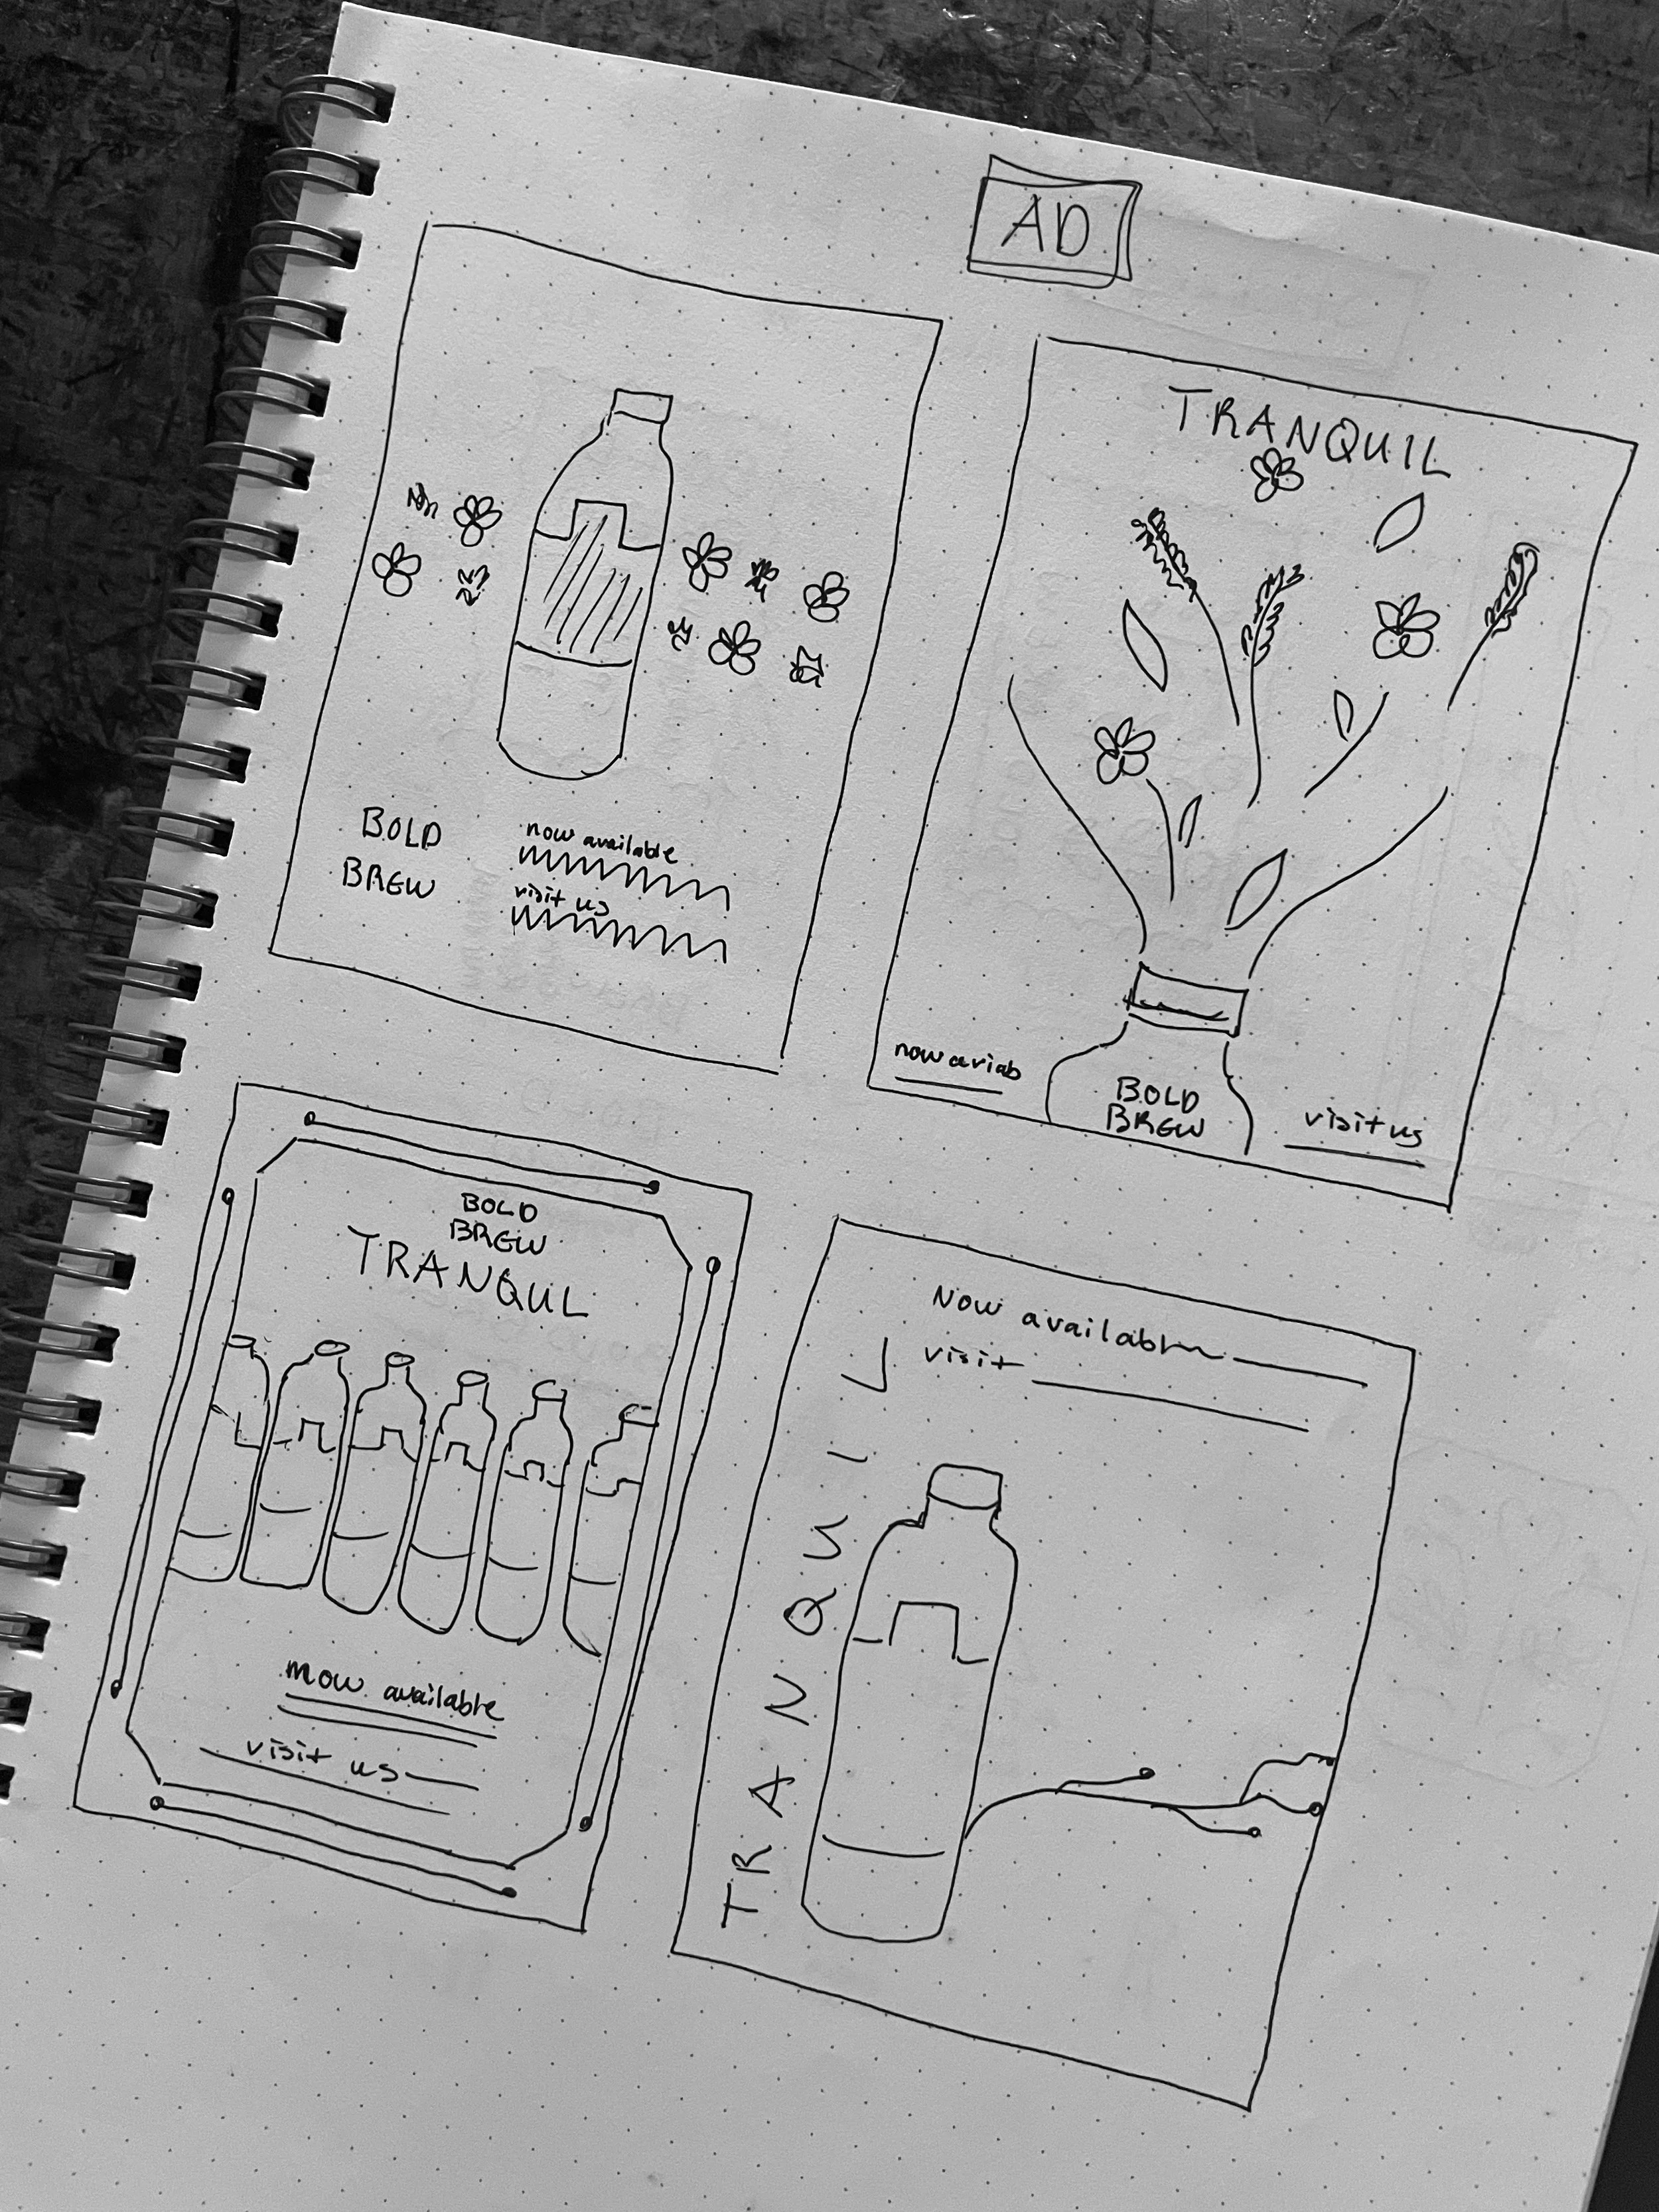 AD
BOLD
BREW
now available
visit us
TRANQUIL
now avriab
BOLD
BREW
visit us
BOLD
BREW
TRANQUL
now available
visit us
Now available
visit
TRANQUIL